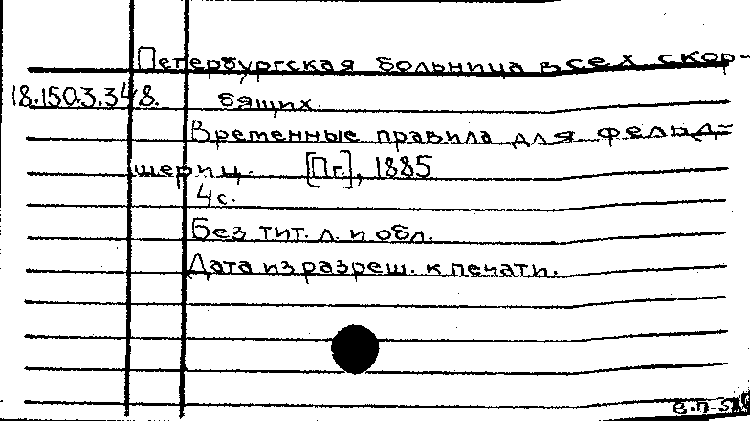 Петербургская больница всех скор-
18.150.3.348. бящих.
Временные правила для фельд-
шериц. [Пг.], 1885
4 с.
Без тит. л. и обл.
Дата из разреш. к печати.